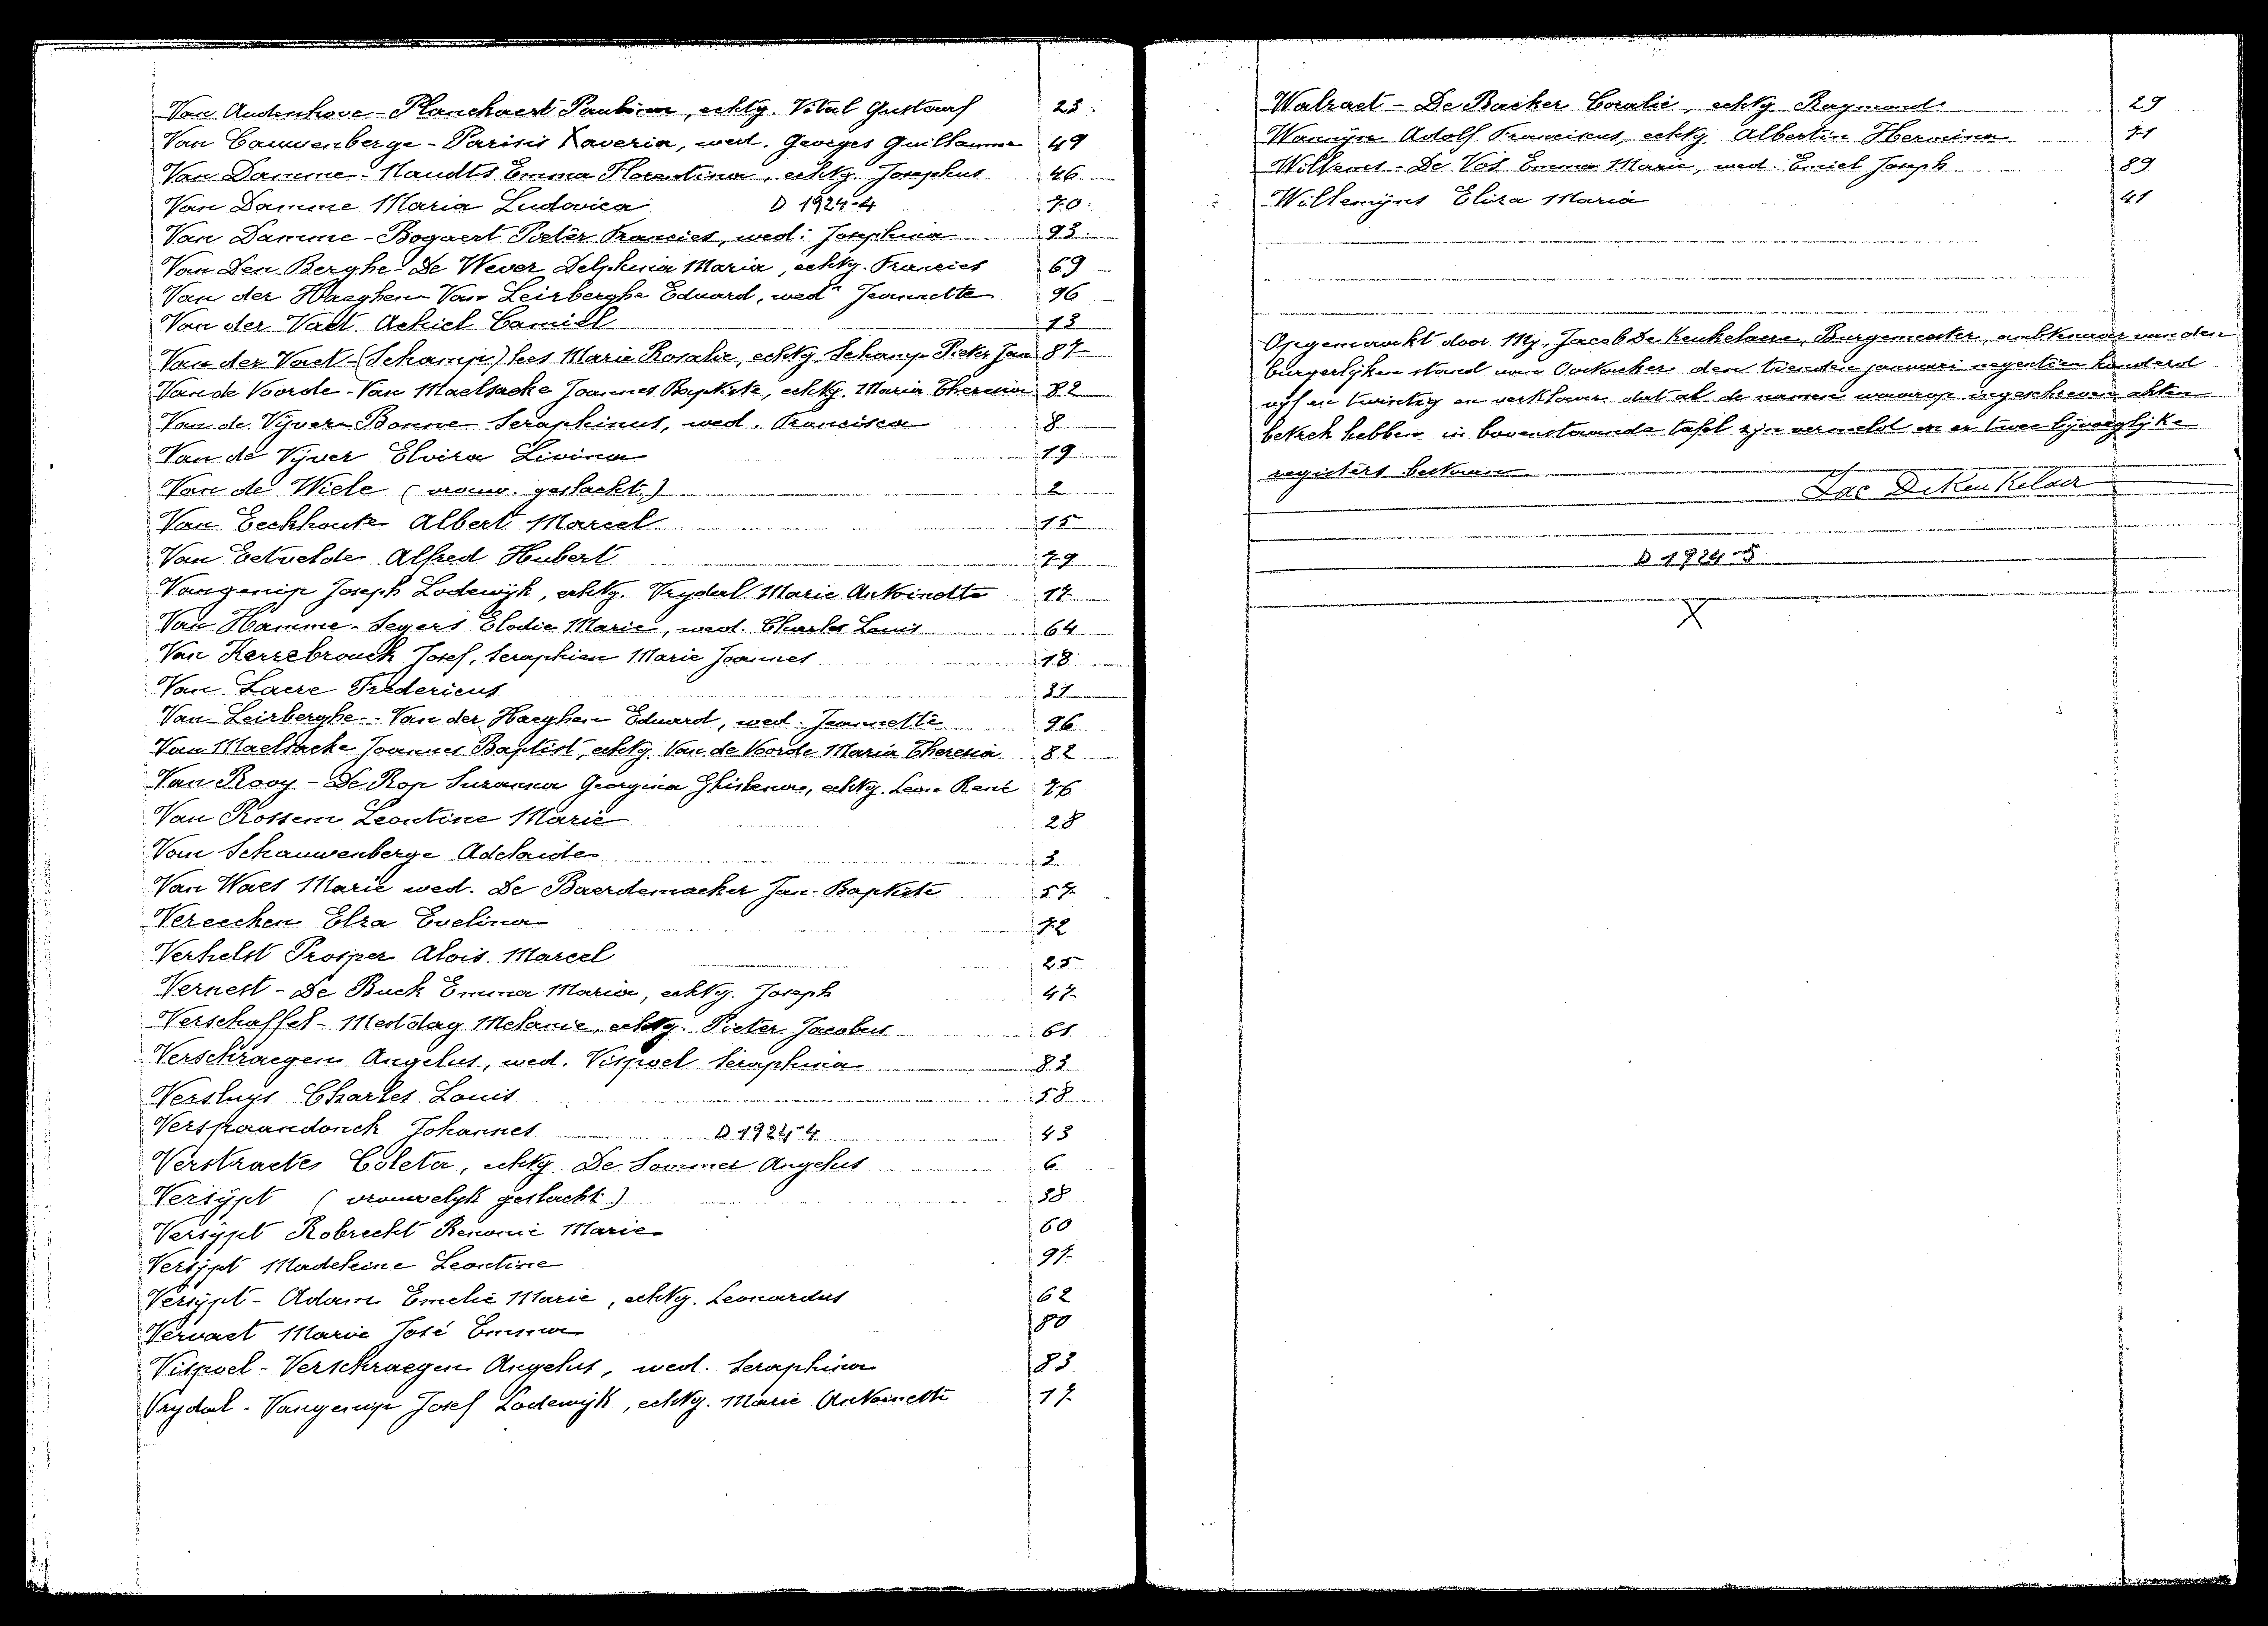 Van Audenhove - Planckaert Paulina, echtg. Vital Gustaaf 23
Van Cauwenberge - Parisis Xaveria, wed. Georges Guillaume 49
Van Damme - Naudts Emma Florentina, echtg. Josephus 46
Van Damme Maria Ludovica D 1924-4 70
Van Damme - Bogaert Pieter Francies, wed. Josephina 93
Van Den Berghe - De Wever Delphina Maria, echtg. Francies 69
Van der Haeghen - Van Leirberghe Eduard, wed. Jeannette 96
Van der Vaet Achiel Camiel 13
Van der Vaet - (Schamp) lees Marie Rosalie, echtg. Schamp Pieter Jan 87
Van de Voorde - Van Maelsacke Joannes Baptiste, echtg. Maria Theresia 82
Van de Vijver - Bonne Seraphinus, wed. Francisca 8
Van de Vijver Elvira Livina 19
Van de Wiele (vrouw. geslacht.) 2
Van Eeckhoute Albert Marcel 15
Van Eetvelde Alfred Hubert 79
Vangenip Joseph Lodewijk, echtg. Vrydal Marie Antoinette 17
Van Hamme - Segers Elodie Marie, wed. Charles Louis 64
Van Kerrebrouck Josef, Seraphien Marie Joannes 18
Van Laere Fredericus 31
Van Leirberghe - Van der Haeghen Eduard, wed. Jeannette 96
Van Maelsacke Joannes Baptist, echtg. Van de Voorde Maria Theresia 82
Van Rooy - De Rop Suzanna Georgina Ghislena, echtg. Leon René 76
Van Rossem Leontine Marie 28
Van Schauwenberge Adelaide 3
Van Waes Marie wed. De Baerdemaeker Jan-Baptiste 57
Vereecken Elza Evelina 72
Verhelst Prosper Alois Marcel 25
Vernest - De Buck Emma Maria, echtg. Joseph 47
Verschaffel - Mestdag Melanie, echtg. Pieter Jacobus 61
Verschraegen Angelus, wed. Vispoel Seraphina 83
Versluys Charles Louis 58
Verspaandonck Johannes D 1924-4 43
Verstraeten Coleta, echtg. De Sommer Angelus 6
Versÿpt (vrouwelyk geslacht.) 38
Versÿpt Robrecht Marie 60
Versÿpt Madeleine Leontine 97
Versÿpt - Adam Emelie Marie, echtg. Leonardus 62
Vervaet Marie José Emma 80
Vispoel - Verschraegen Angelus, wed. Seraphina 83
Vrydal - Vangenip Josef Lodewijk, echtg. Marie Antoinette 17
Walraet - De Backer Coralie, echtg. Raymond 29
Wannÿn Adolf Franciscus, echtg. Albertin Hermina 71
Willems - De Vos Emma Marie, wed. Emiel Joseph 89
Willemÿns Eliza Maria 41
Opgemaakt door Mij, Jacob De Keukelaere, Burgemeester, ambtenaar van den
burgerlijken stand van Oostacker den tienden januari negentien honderd
vijf en twintig en verklaar dat al de namen waarop ingeschreven akten
betrek hebben in bovenstaande tafel zijn vermeld en er twee bijvoeglijke
registers bestaan
Jac DeKeukelaer
D 1924-5
X